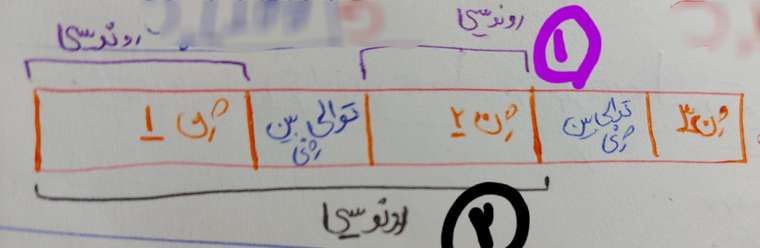 رونویسی
رونویسی
۱
ژن ۱
توالی بین
ژنی
ژن ۲
توالی بین
ژنی
ژن ۳
رونویسی
۲